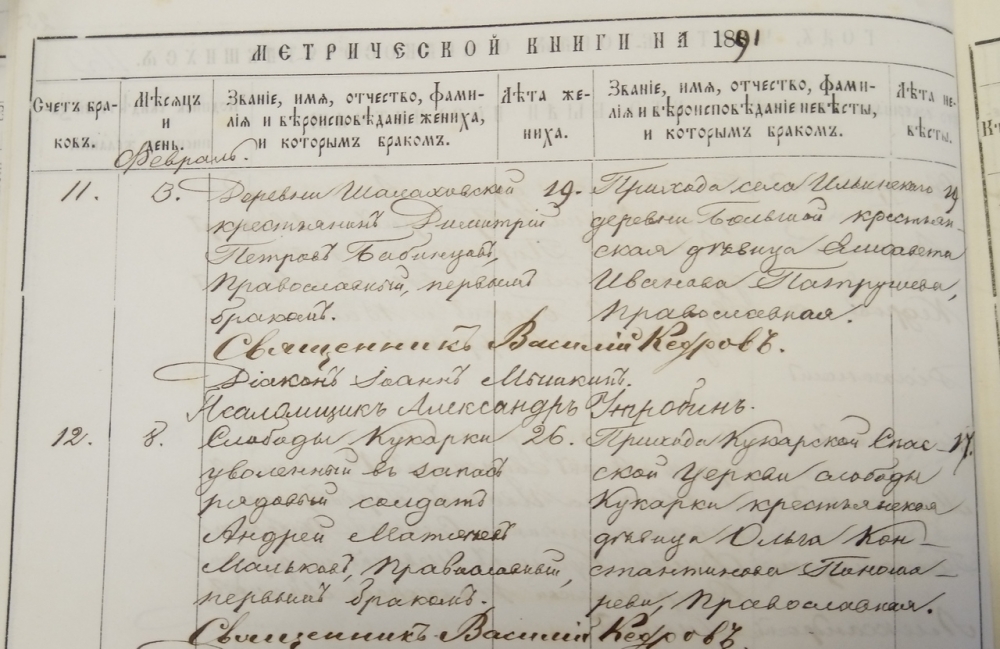 МЕТРИЧЕСКОЙ КНИГИ НА 1891
Счетъ бра-
ковъ.
Мѣсяцъ
и
день.
Званіе, имя, отчество, фами-
лія и вѣроисповѣданіе жениха,
и которымъ бракомъ.
Лѣта же-
ниха.
Званіе, имя, отчество, фами-
лія и вѣроисповѣданіе невѣсты,
и которымъ бракомъ.
Лѣта не-
вѣсты.
Февраль.
11.
3.
Деревни Шалаховской
крестьянинъ Димитрій
Петровъ Бабинцовъ,
православный, первымъ
бракомъ.
19.
Прихода села Ильинскаго
деревни Большой крестьян-
ская дѣвица Елисавета
Иванова Патрушева,
православная.
19
Священникъ Василій Кедровъ.
Діаконъ Іоаннъ Мышкинъ.
Псаломщикъ Александръ Утробинъ.
12.
8.
Слободы Кукарки
уволенный въ запасъ
рядовый солдатъ
Андрей Матѳеевъ
Мальковъ, православный,
первымъ бракомъ.
26.
Прихода Кукарской Спас-
ской церкви слободы
Кукарки крестьянская
дѣвица Ольга Кон-
стантинова Понома-
рева, православная.
17.
Священникъ Василій Кедровъ.